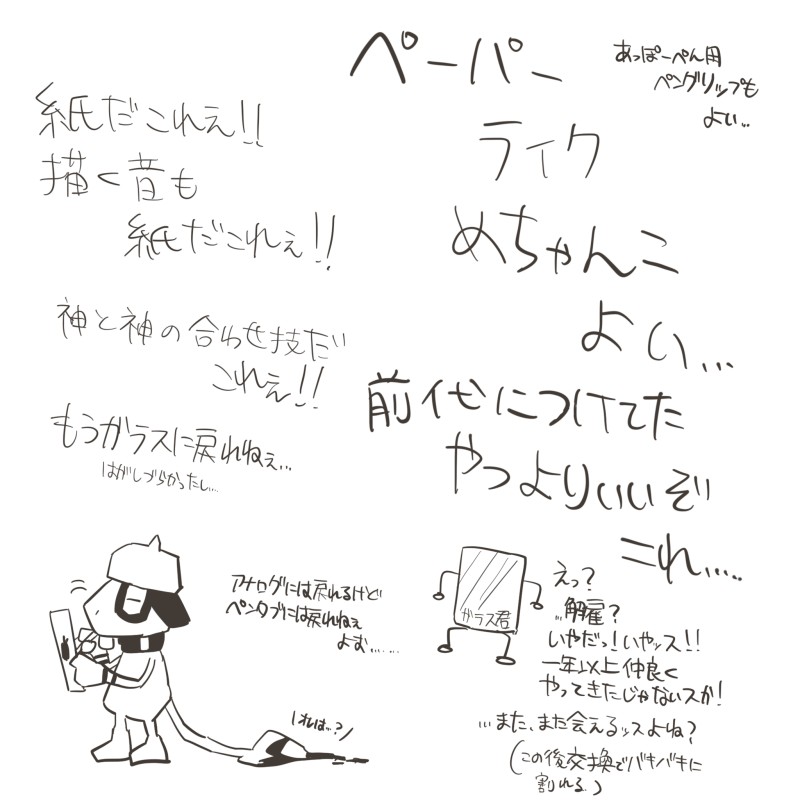 ペーパー
ライク
めちゃんこ
よい...
前代につけてた
やつよりいいぞ
これ.....
あっぽーぺん用
ペングリップも
よい...
紙だこれぇ!!
描く音も
紙だこれぇ!!
神と神の合わせ技だ
これぇ!!
もうガラスに戻れねぇ...
はがしづらかったし...
アナログには戻れるけど
ペンタブには戻れねぇ
よぉ......
これは..?
ガラス君
えっ?
..解雇?
いやだっ!いやッス!!
一年以上仲良く
やってきたじゃないスか!
...また、また会えるッスよね?
(この後交換でバキバキに
割れる)